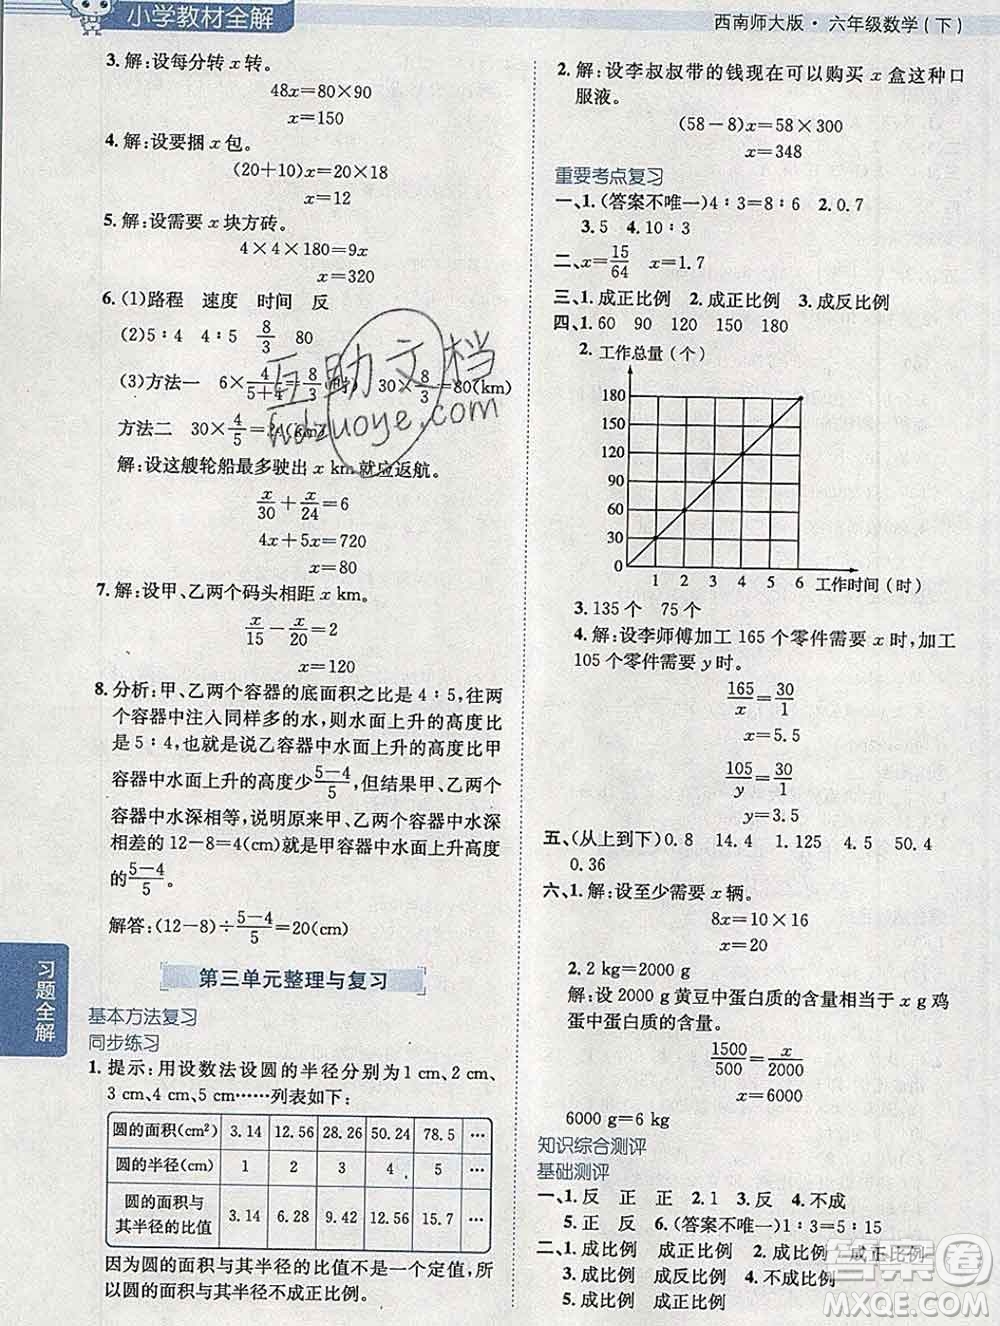 小学教材全解
西南师大版·六年级数学(下)
3. 解:设每分转 x 转。
48x=80×90
x=150
4. 解:设要捆 x 包。
(20+10)x=20×18
x=12
5. 解:设需要 x 块方砖。
4×4×180=9x
x=320
6. (1)路程 速度 时间 反
(2)5∶4 4∶5 8/3 80
(3)方法一 6×4/(5+4)=8/3(时) 30×8/3=80(km)
方法二 30×4/5=24(km)
解:设这艘轮船最多驶出 x km 就应返航。
x/30+x/24=6
4x+5x=720
x=80
7. 解:设甲、乙两个码头相距 x km。
x/15-x/20=2
x=120
8. 分析:甲、乙两个容器的底面积之比是 4∶5,往两
个容器中注入同样多的水,则水面上升的高度比
是 5∶4,也就是说乙容器中水面上升的高度比甲
容器中水面上升的高度少(5-4)/5,但结果甲、乙两个
容器中水深相等,说明原来甲、乙两容器中水深
相差的 12-8=4(cm)就是甲容器中水面上升高度
的(5-4)/5。
解答:(12-8)÷(5-4)/5=20(cm)
第三单元整理与复习
基本方法复习
同步练习
1. 提示:用设数法设圆的半径分别为 1 cm,2 cm,
3 cm,4 cm,5 cm……列表如下:
圆的面积(cm²) 3.14 12.56 28.26 50.24 78.5 …
圆的半径(cm) 1 2 3 4 5 …
圆的面积与
其半径的比值 3.14 6.28 9.42 12.56 15.7 …
因为圆的面积与其半径的比值不是一个定值,所
以圆的面积与其半径不成正比例。
习题全解
2. 解:设李叔叔带的钱现在可以购买 x 盒这种口
服液。
(58-8)x=58×300
x=348
重要考点复习
一、1. (答案不唯一)4∶3=8∶6 2. 0.7
3. 5 4. 10∶3
二、x=15/64 x=1.7
三、1. 成正比例 2. 成正比例 3. 成反比例
四、1. 60 90 120 150 180
2. 工作总量(个)
180
150
120
90
60
30
0 1 2 3 4 5 6 工作时间(时)
3. 135 个 75 个
4. 解:设李师傅加工 165 个零件需要 x 时,加工
105 个零件需要 y 时。
165/x=30/1
x=5.5
105/y=30/1
y=3.5
五、(从上到下)0.8 14.4 1.125 4.5 0.45
0.36
六、1. 解:设至少需要 x 辆。
8x=10×16
x=20
2. 2 kg=2000 g
解:设 2000 g 黄豆中蛋白质的含量相当于 x g 鸡
蛋中蛋白质的含量。
1500/500=x/2000
x=6000
6000 g=6 kg
知识综合测评
基础测评
一、1. 反 正 正 2. 1 3. 反 4. 不成
5. 正 反 6. (答案不唯一)1∶3=5∶15
二、1. 成比例 成正比例 2. 成比例 成正比例
3. 成比例 成反比例 4. 不成比例
5. 成比例 成正比例
互助文档
hdzuoye.com
答案圈
MXQE.COM